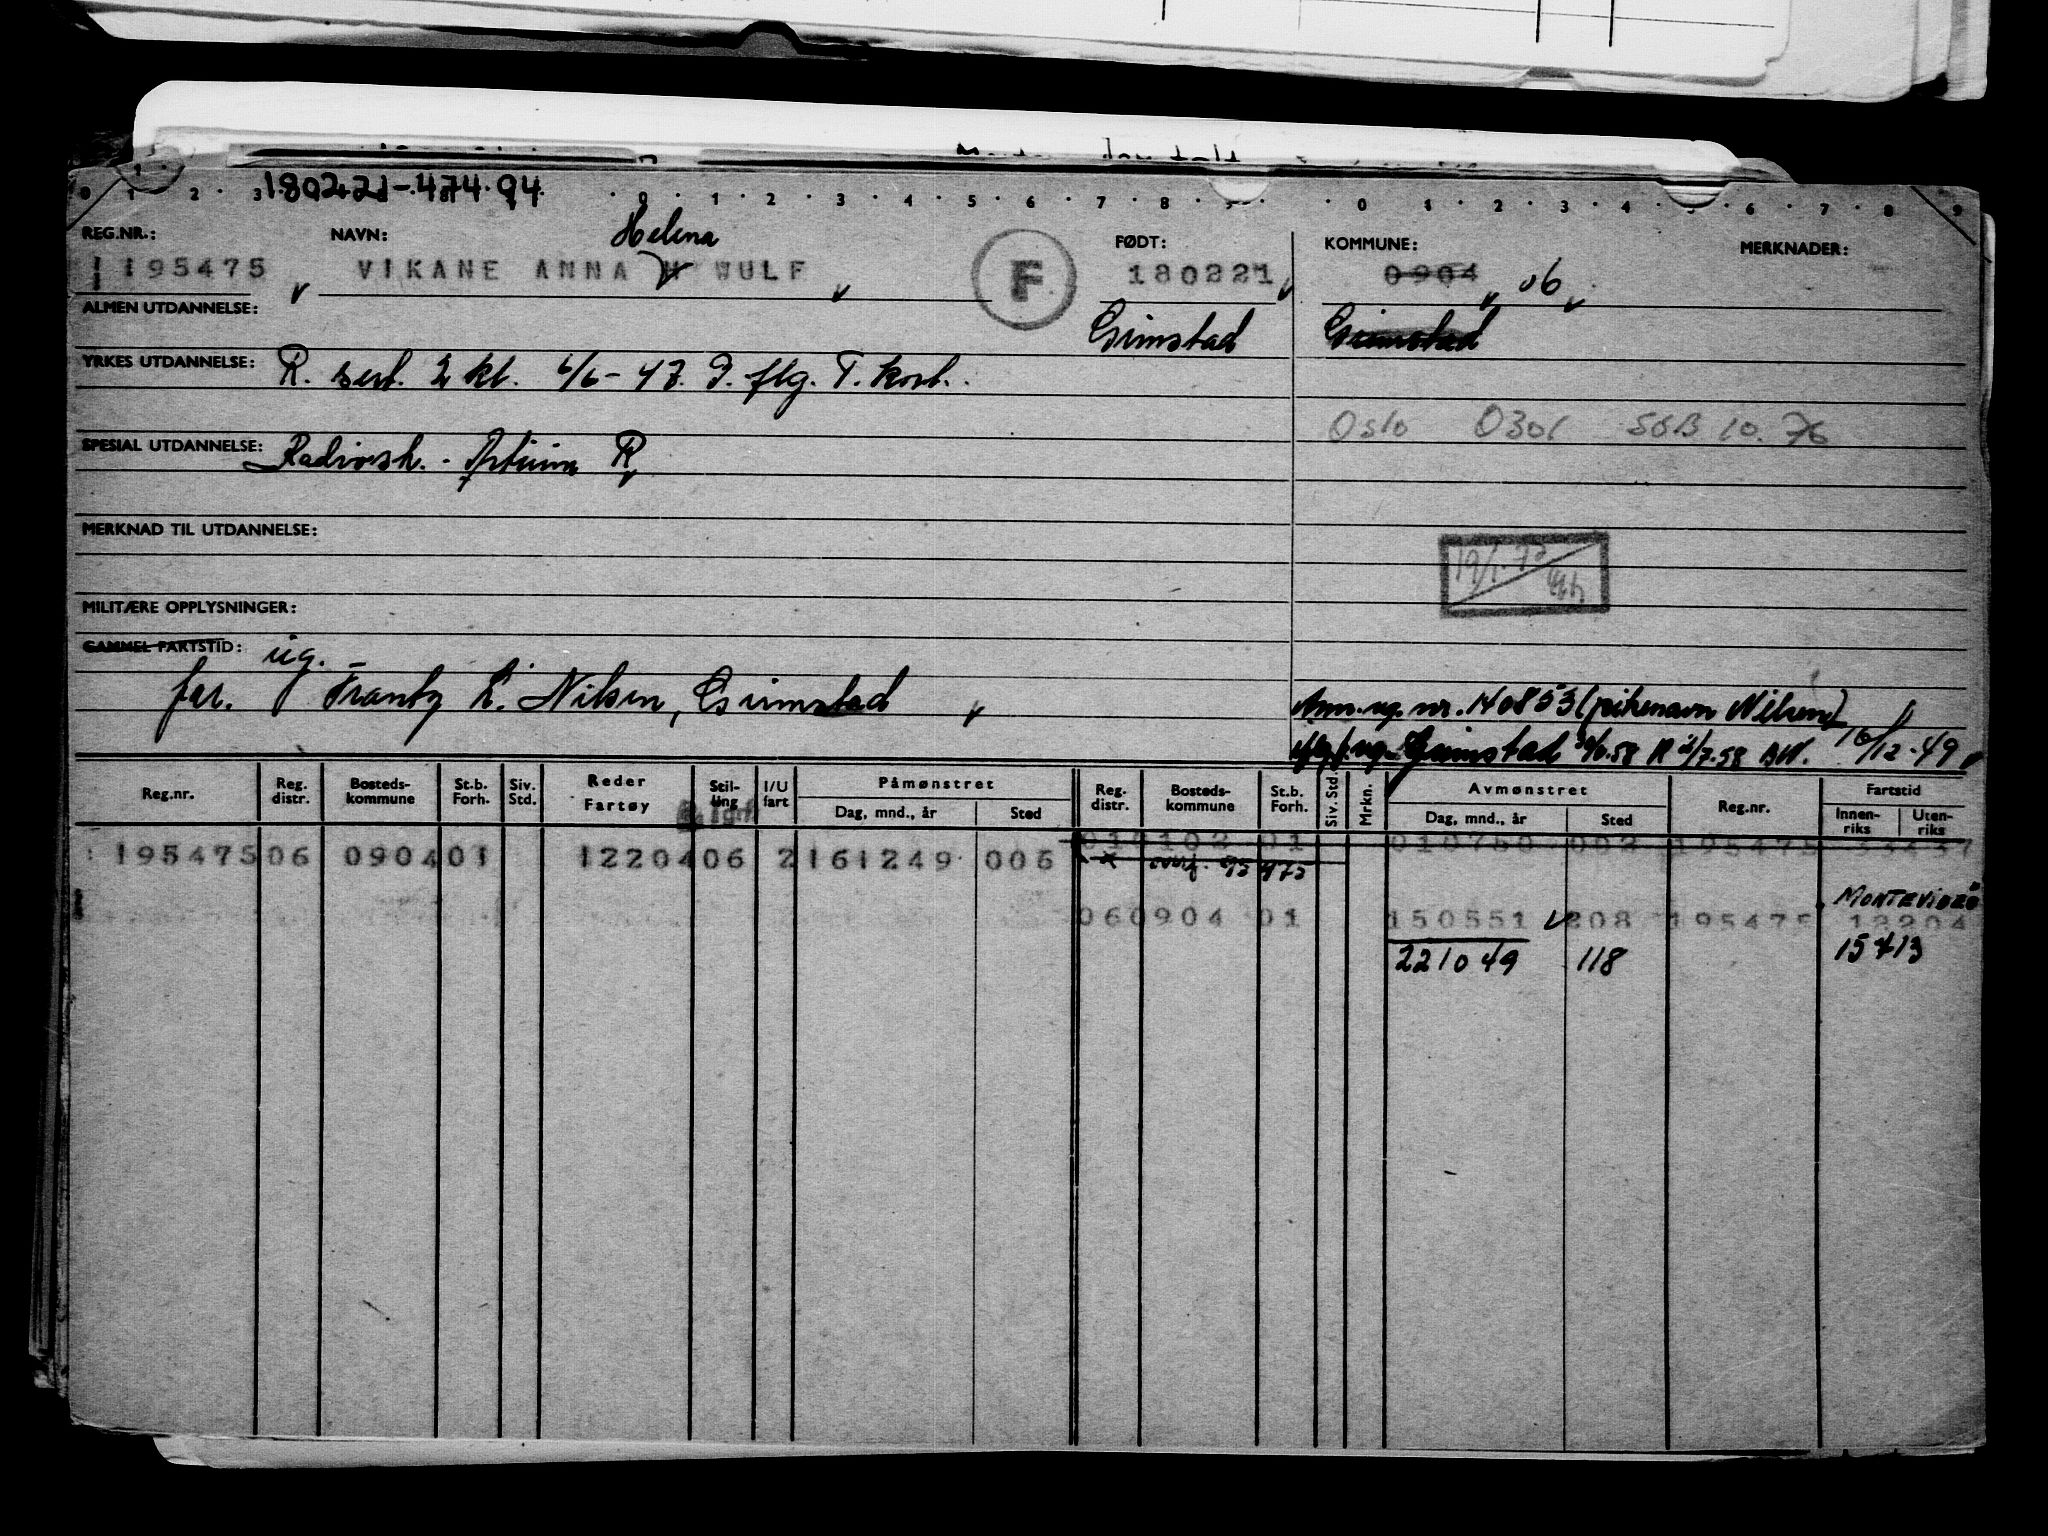 180221-474.94
0 1 2 3 0 1 2 3 4 5 6 7 8 9 0 1 2 3 4 5 6 7 8 9
REG.NR.: NAVN: Helena FØDT: KOMMUNE: MERKNADER:
195475 VIKANE ANNA H WULF F 180221 0904 06
ALMEN UTDANNELSE: Grimstad Grimstad
YRKES UTDANNELSE: R. sert. 2 kl. 6/6-47. I. flg. T. kort.
Oslo 0301 SSB 10.76
SPESIAL UTDANNELSE: Radiosk. R
MERKNAD TIL UTDANNELSE:
19/1.73
MILITÆRE OPPLYSNINGER:
GAMMEL FARTSTID: ug.
far. Frantz L. Nilsen, Grimstad
Ann. ug. nr. 140853 (pikenavn Nilsen)
ug. Grimstad 58 R 2/7.58 AW. 16/12-49
Reg.nr. Reg. distr. Bosteds-kommune St.b. Forh. Siv. Std. Reder Fartøy Stil-ling I/U fart Påmønstret Dag, mnd., år Sted Reg. distr. Bosteds-kommune St.b. Forh. Siv. Std. Mrkn. Avmønstret Dag, mnd., år Sted Reg.nr. Fartstid Innen-riks Uten-riks
010102 01 010750 002 195475
195475 06 0904 01 12204 06 2 161249 006
overf. 95475
MONTEVIDEO
060904 01 150551 208 195475 13204
221049 118 15413